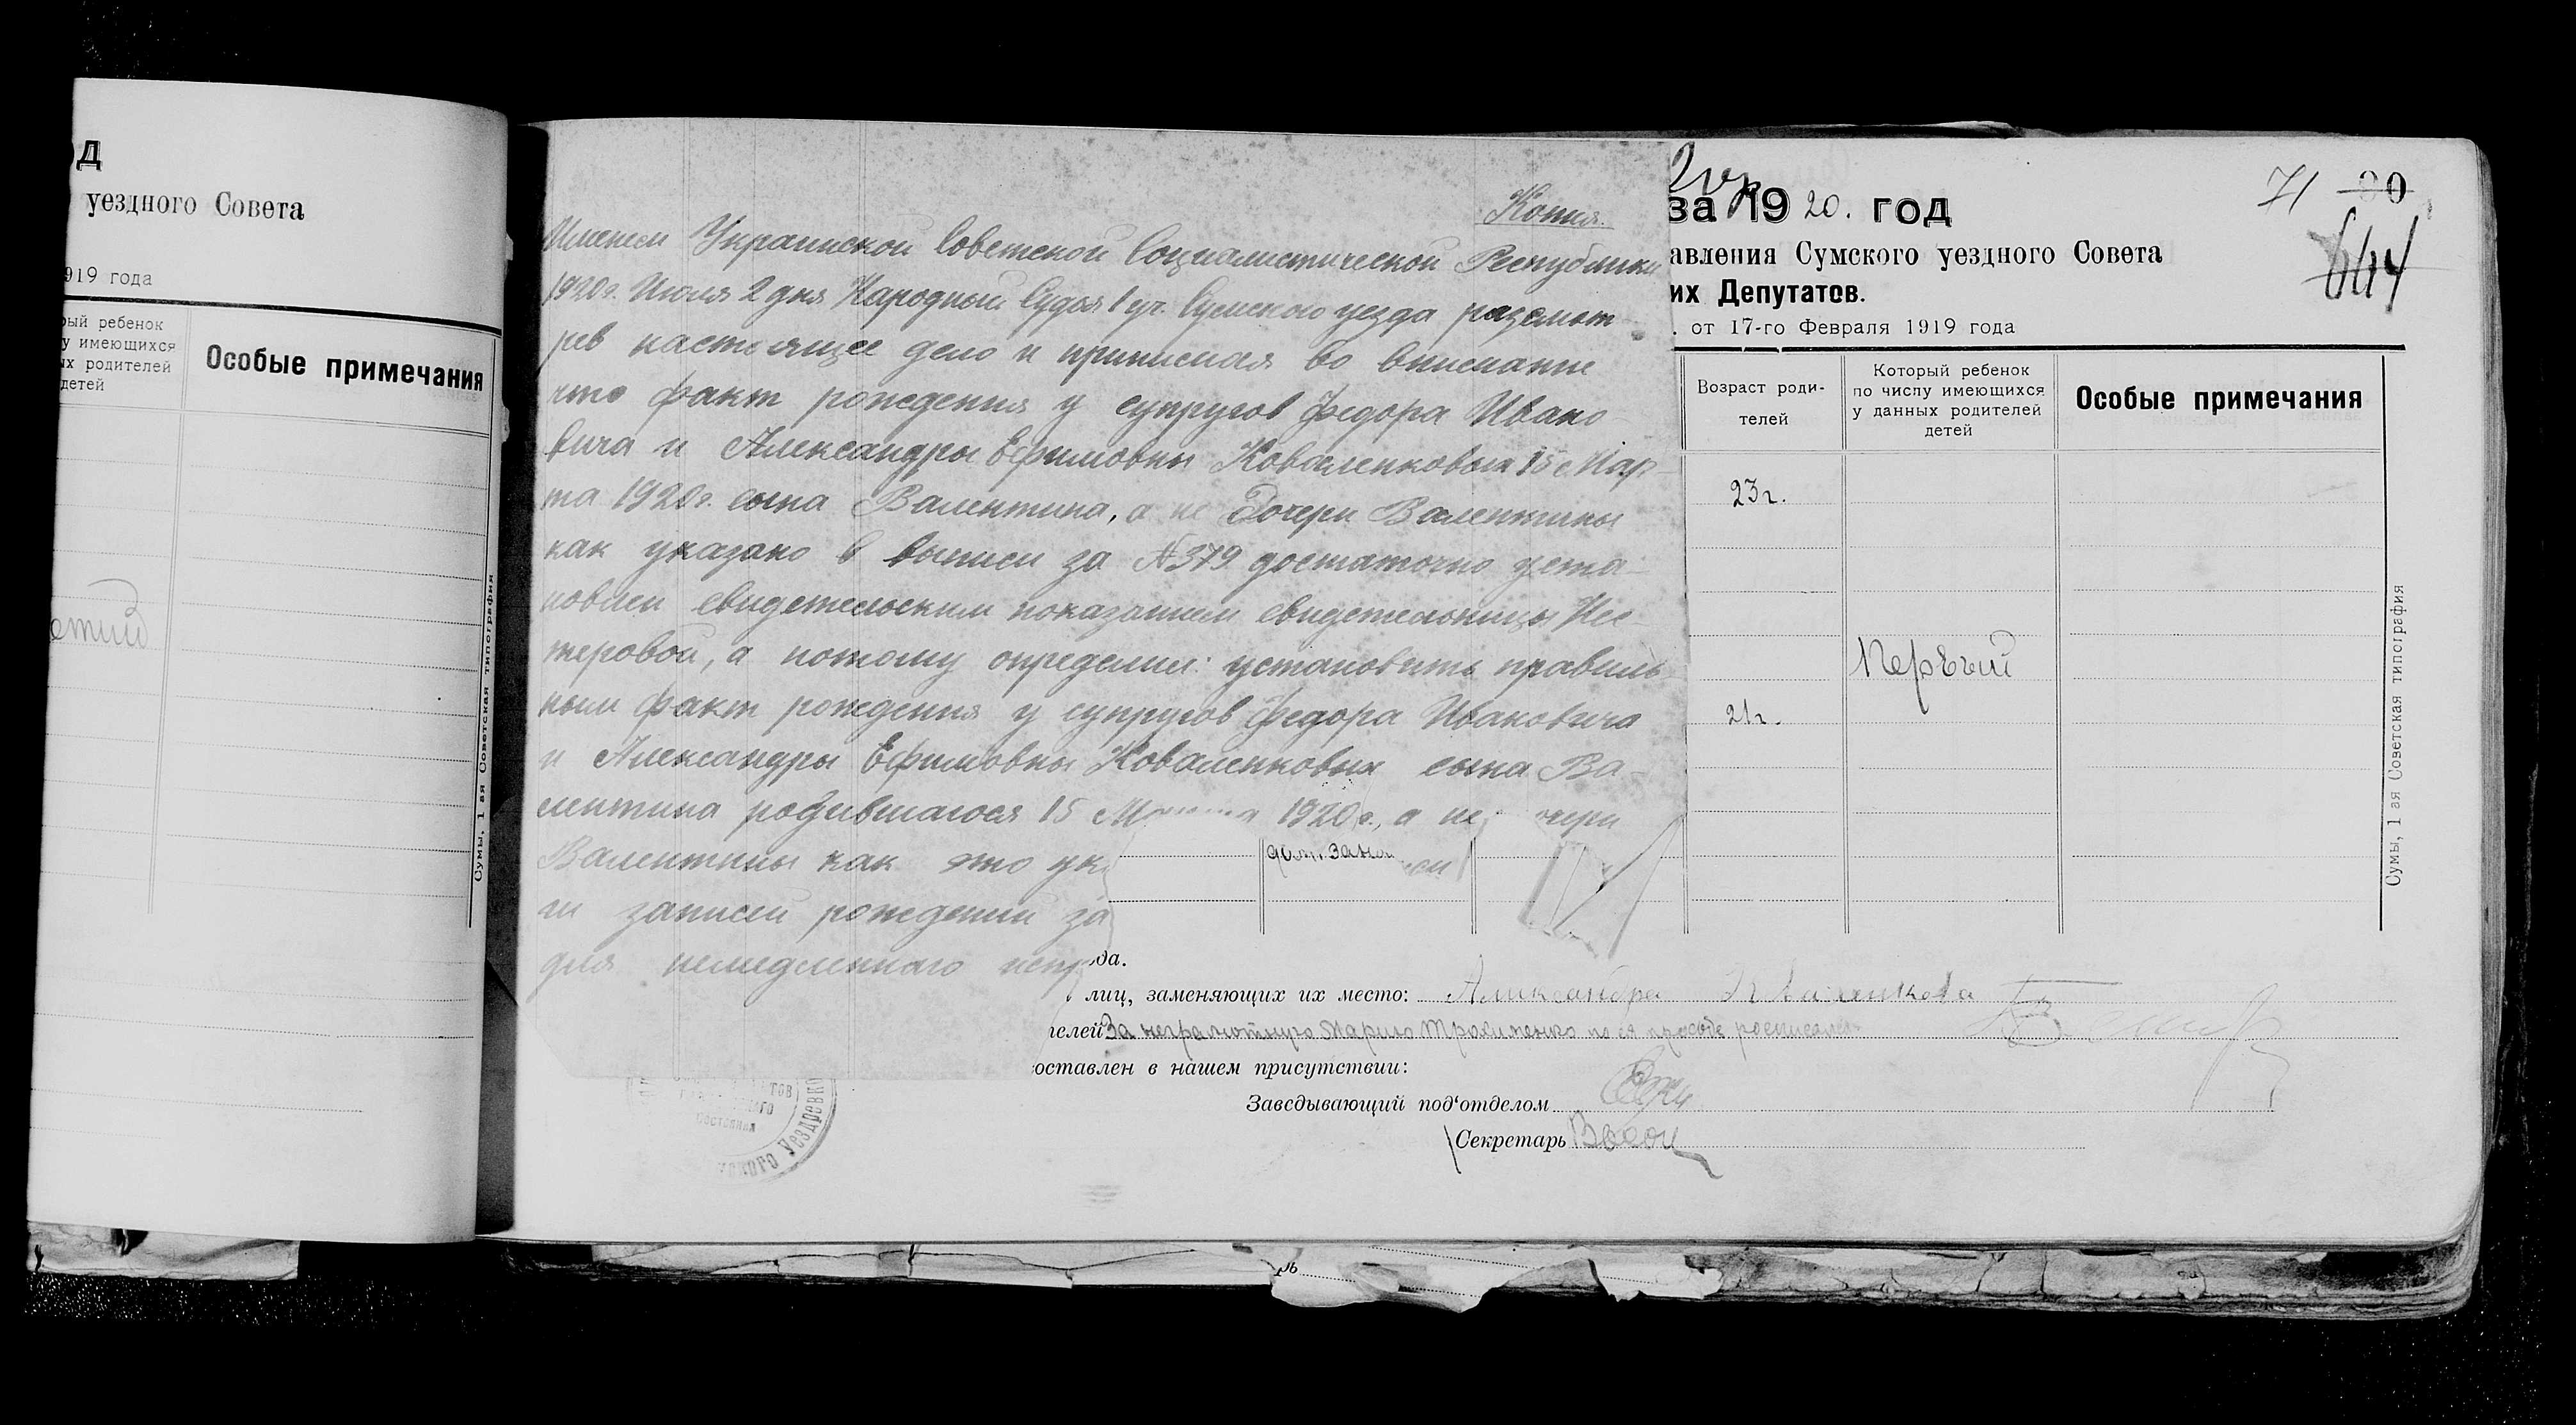 уездного Совета
919 года
ребенок
у имеющихся
родителей
детей
Особые примечания
Сумы, 1 ая Советская типография
Копия.
Именем Украинской Советской Социалистической Республики
1920г. Июля 2 дня Народный Судья 1 уч. Сумского уезда разсмот
рев настоящее дело и принимая во внимание
что факт рождения у супругов Федора Ивано
вича и Александры Ефимовны Коваленковых 15 Мар
та 1920г. сына Валентина, а не Дочери Валентины
как указано в выписи за №379 достаточно уста-
новлен свидетельским показанием свидетельницы Нес
теровой, а потому определил: установить правиль
ным факт рождения у супругов Федора Ивановича
и Александры Ефимовны Коваленковых сына Ва-
лентина родившагося 15 1920г., а не
Валентины как это ук
записей рождений за
для немедленного
за 1920. год
71 90
644
авления Сумского уездного Совета
их Депутатов.
от 17-го Февраля 1919 года
Возраст роди-
телей
Который ребенок
по числу имеющихся
у данных родителей
детей
Особые примечания
23г.
Первый
21г.
Сумы, 1 ая Советская типография
да.
лиц, заменяющих их место: Александра Коваленкова
телей За неграмотную Марию Трохименко по ея просьбе росписался
оставлен в нашем присутствии:
Заведывающий под‘отделом
Секретарь